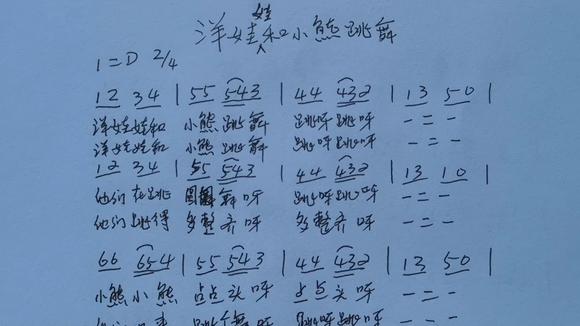 洋娃娃和小熊跳舞
1=D 2/4
12 34 | 55 543 | 44 432 | 13 50 |
洋娃娃和 小熊跳舞 跳呀跳呀 一二一
洋娃娃和 小熊跳舞 跳呀跳呀 一二一
12 34 | 55 543 | 44 432 | 13 10 |
他们在跳 圆舞呀 跳呀跳呀 一二一
他们跳得 多整齐呀 多整齐呀 一二一
66 654 | 55 543 | 44 432 | 13 50 |
小熊小熊 点点头呀 点点头呀 一二一